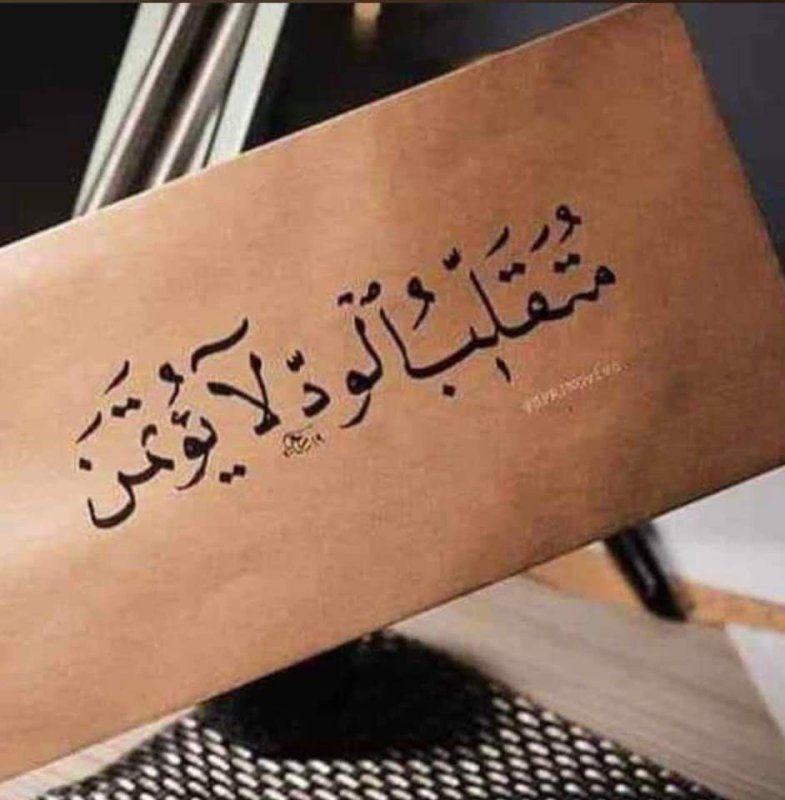 مُتَقَلِّبُ الْوُدِّ لَا يُؤْتَمَنَ